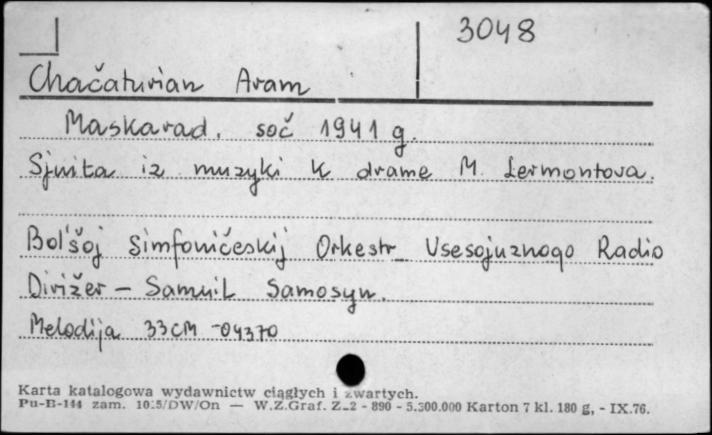 3048
Chačaturian Aram
Maskarad. soč 1941 g.
Sjuita iz muzyki k drame M. Lermontova.
Bol'šoj Simfoničeskij Orkestr Vsesojuznogo Radio
Dirižer - Samuil Samosyn.
Melodija 33CM -04370
Karta katalogowa wydawnictw ciągłych i zwartych.
Pu-B-144 zam. 1025/DW/On — W.Z.Graf. Z-2 - 890 - 5.300.000 Karton 7 kl. 180 g, - IX.76.